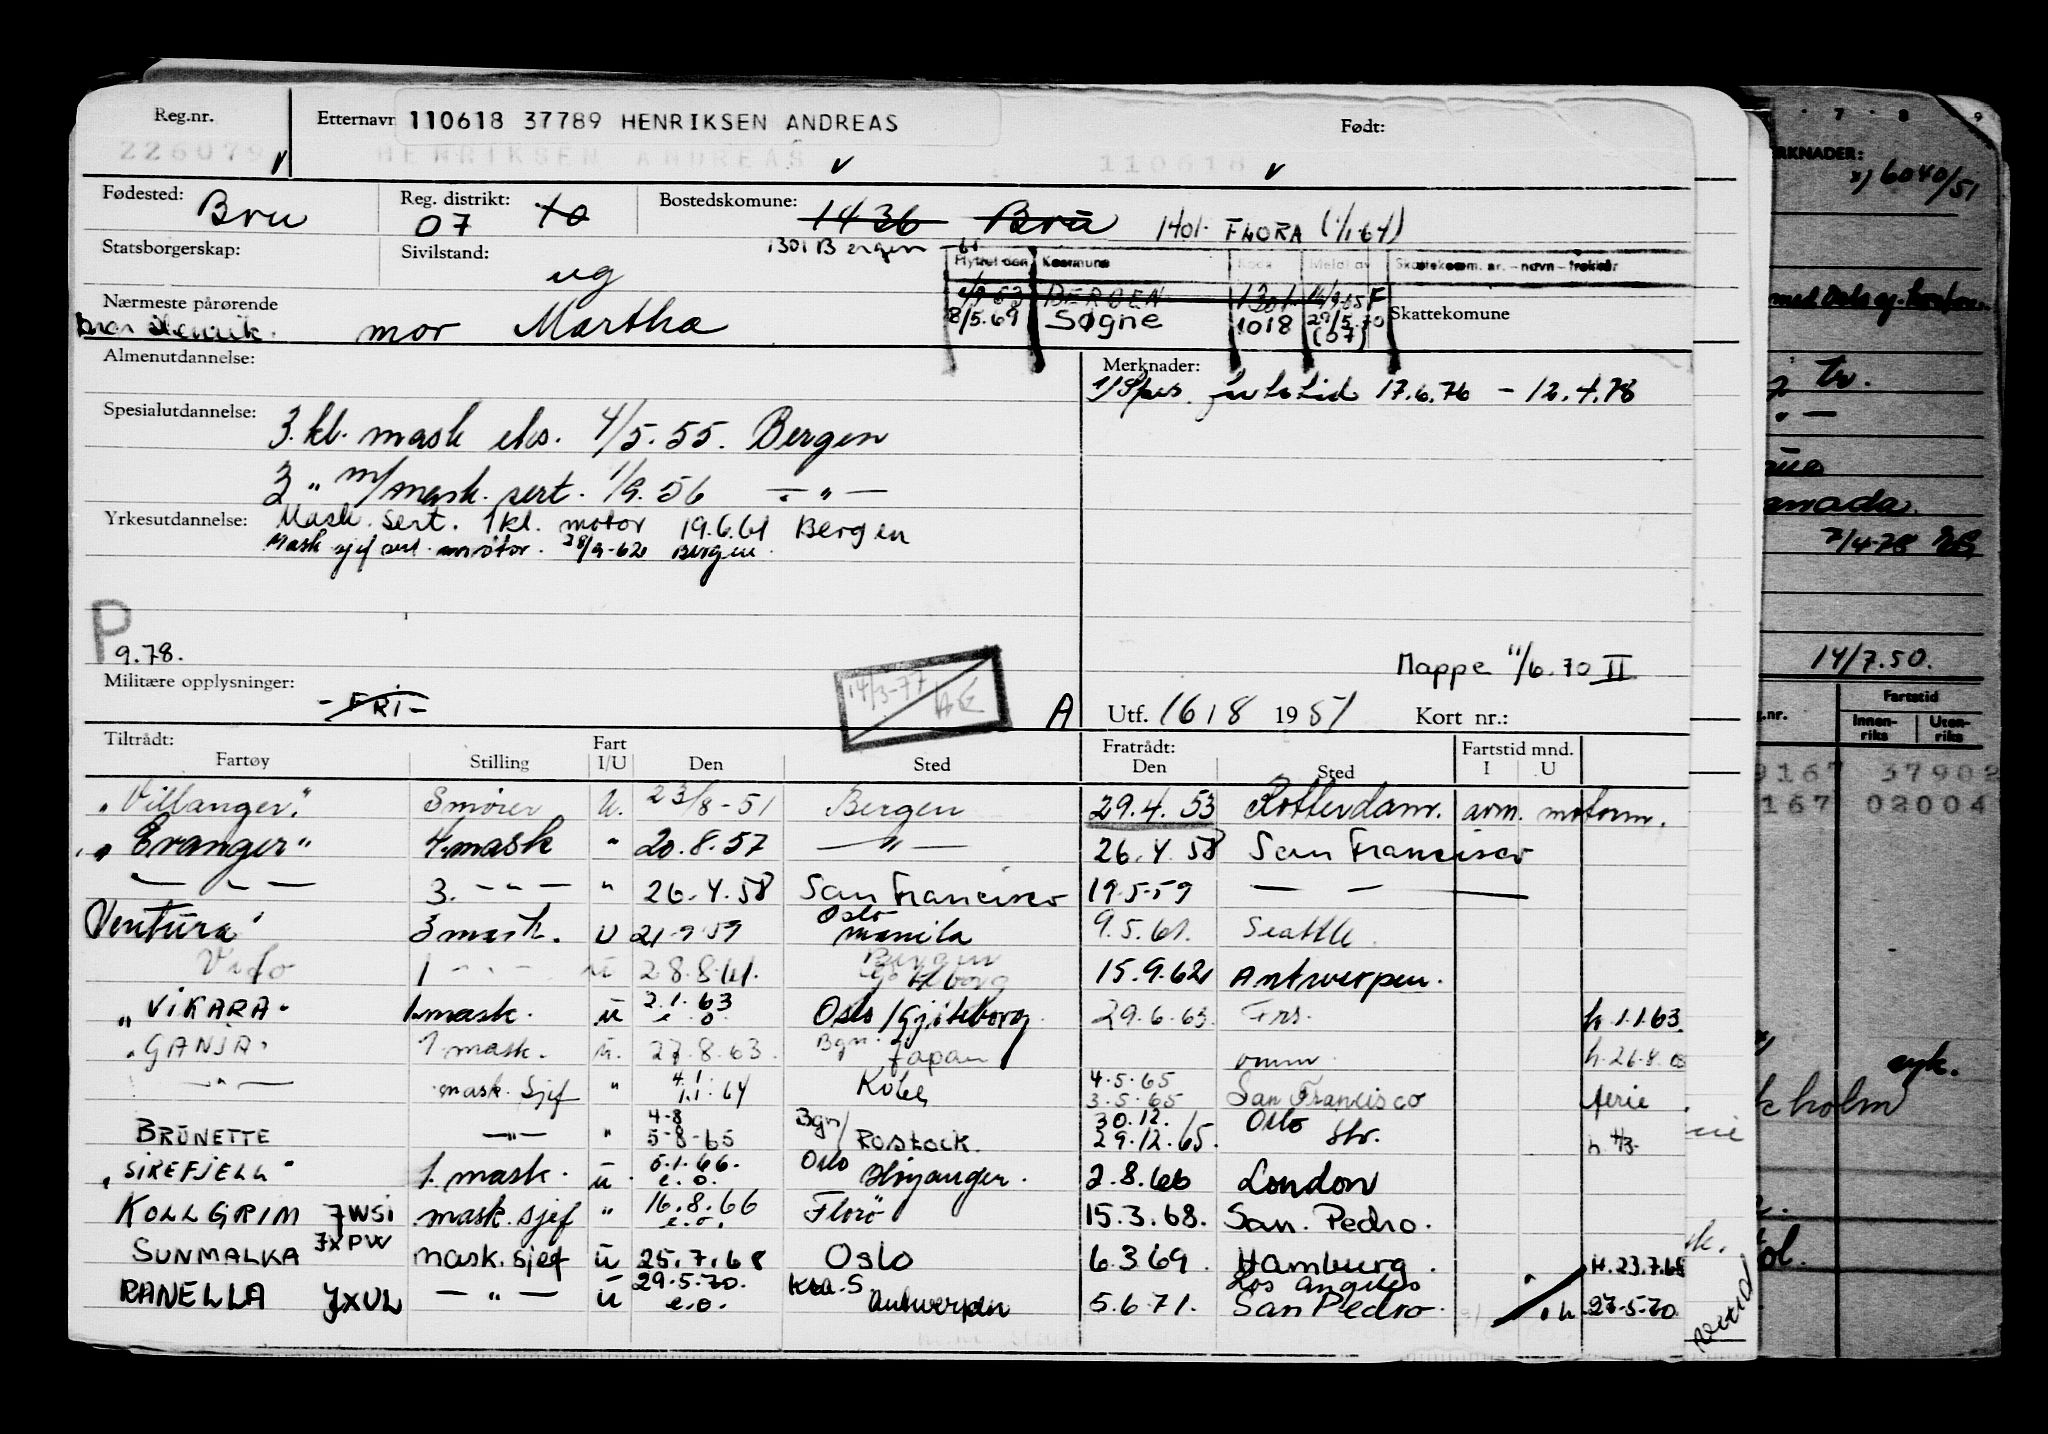 Reg.nr. Etternavn 110618 37789 HENRIKSEN ANDREAS Født:
226079 HENRIKSEN ANDREAS 110618
Fødested: Bru Reg. distrikt: 07 10 Bostedskomune: 1436 Bru 1401 FLORA (1/1-64)
1301 Bergen
Statsborgerskap: Sivilstand: ug
Flyttet den Kommune Kode Meldt av Skattekomm. nr. - navn - trekkår
BERGEN 1301 F
Nærmeste pårørende mor Martha 8/5.69 Søgne 1018 29/5.70 (07) Skattekomune
Almenutdannelse: Merknader:
17.6.76 - 12.4.78
Spesialutdannelse: 3.kl. mask eks. 4/5.55. Bergen
3 " m/mask. sert. 1/9.56 - " -
Yrkesutdannelse: Mask. sert. 1kl. motor 19.6.61 Bergen
Mask sjef sert. m/motor. 28/9-62 Bergen.
P
9.78.
Mappe 11/6.70 II
Militære opplysninger: - FRI - 14/3-77
A Utf. 1618 1951 Kort nr.:
Tiltrådt: Fart Fratrådt: Fartstid mnd.
Fartøy Stilling I/U Den Sted Den Sted I U
"Villanger" Smører U. 23/8-51 Bergen 29.4.53 Rotterdam.
"Eranger" 4mask " 20.8.57 - " - 26.4.58 San Francisco
- " - 3. - " - " 26.4.58 San Francisco 19.5.59 - -
Ventura 3 mask. U Oslo Manila 9.5.61. Seattle
1 - " - u 28.8.61. Bergen Gøteborg 15.9.62 Antwerpen.
"VIKARA" 1.mask. u 2.1.63 e.o. Oslo/Gøteborg. 29.6.63. Frs. h 1.1.63.
"GANJA" 1 mask. u. 27.8.63. Bgn. Japan omm. h. 26.8.63
- " - mask. sjef " 4.1 1.1.64 Kobe 4.5.65 3.5.65 San Francisco ferie
BRUNETTE - " - " 4-8 5-8-65 Bgn/ ROSTOCK. 30.12. 29.12.65. Oslo
"SIREFJELL" 1. mask. u 5.1.66. e.o. Oslo Høyanger. 2.8.66 London
KOLLGRIM JWSI mask. sjef " 16.8.66 e.o. Florø 15.3.68. San. Pedro.
SUNMALKA JXPW mask. sjef u 25.7.68 Oslo 6.3.69. Hamburg. H. 23.7.68
RANELLA JXUL - " - u 29.5.70. e.o. Kra.S Antwerpen 5.6.71. Los Angeles San Pedro. h 27-5-70
7 8 9
RKNADER:
6040/51
tr.
- " -
7/4-78
14/7.50.
Fartstid
g.nr. Innen-riks Uten-riks
9167 37902
167 02004
syk.
kholm